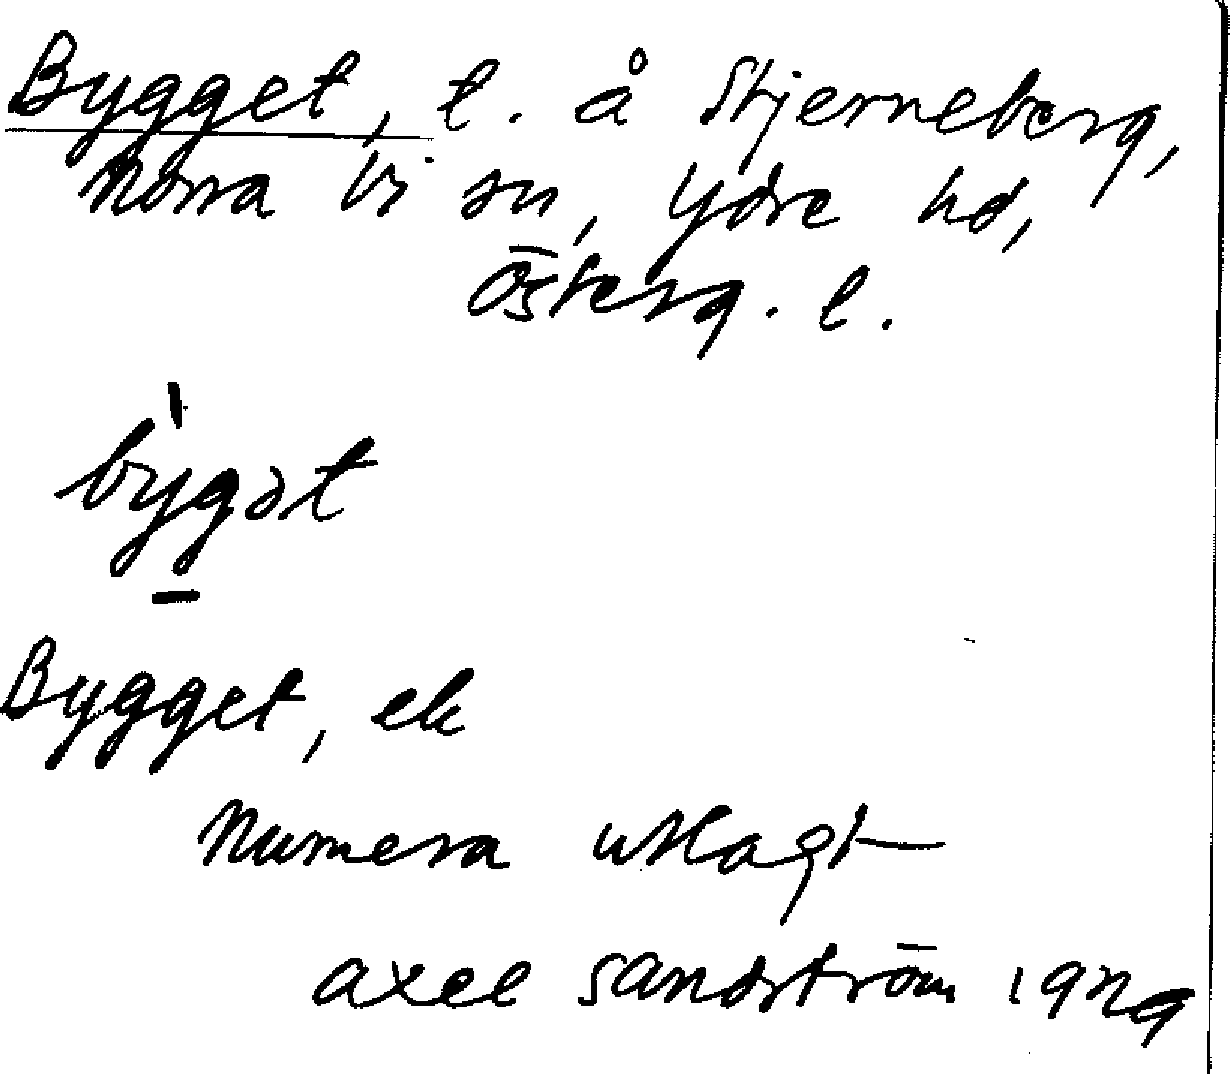 Bygget, t. å Stjerneberg,
Norra Vi sn, Ydre hd,
Österg. l.
bygət
Bygget, ek
Numera utlagt
Axel Sandström 1929